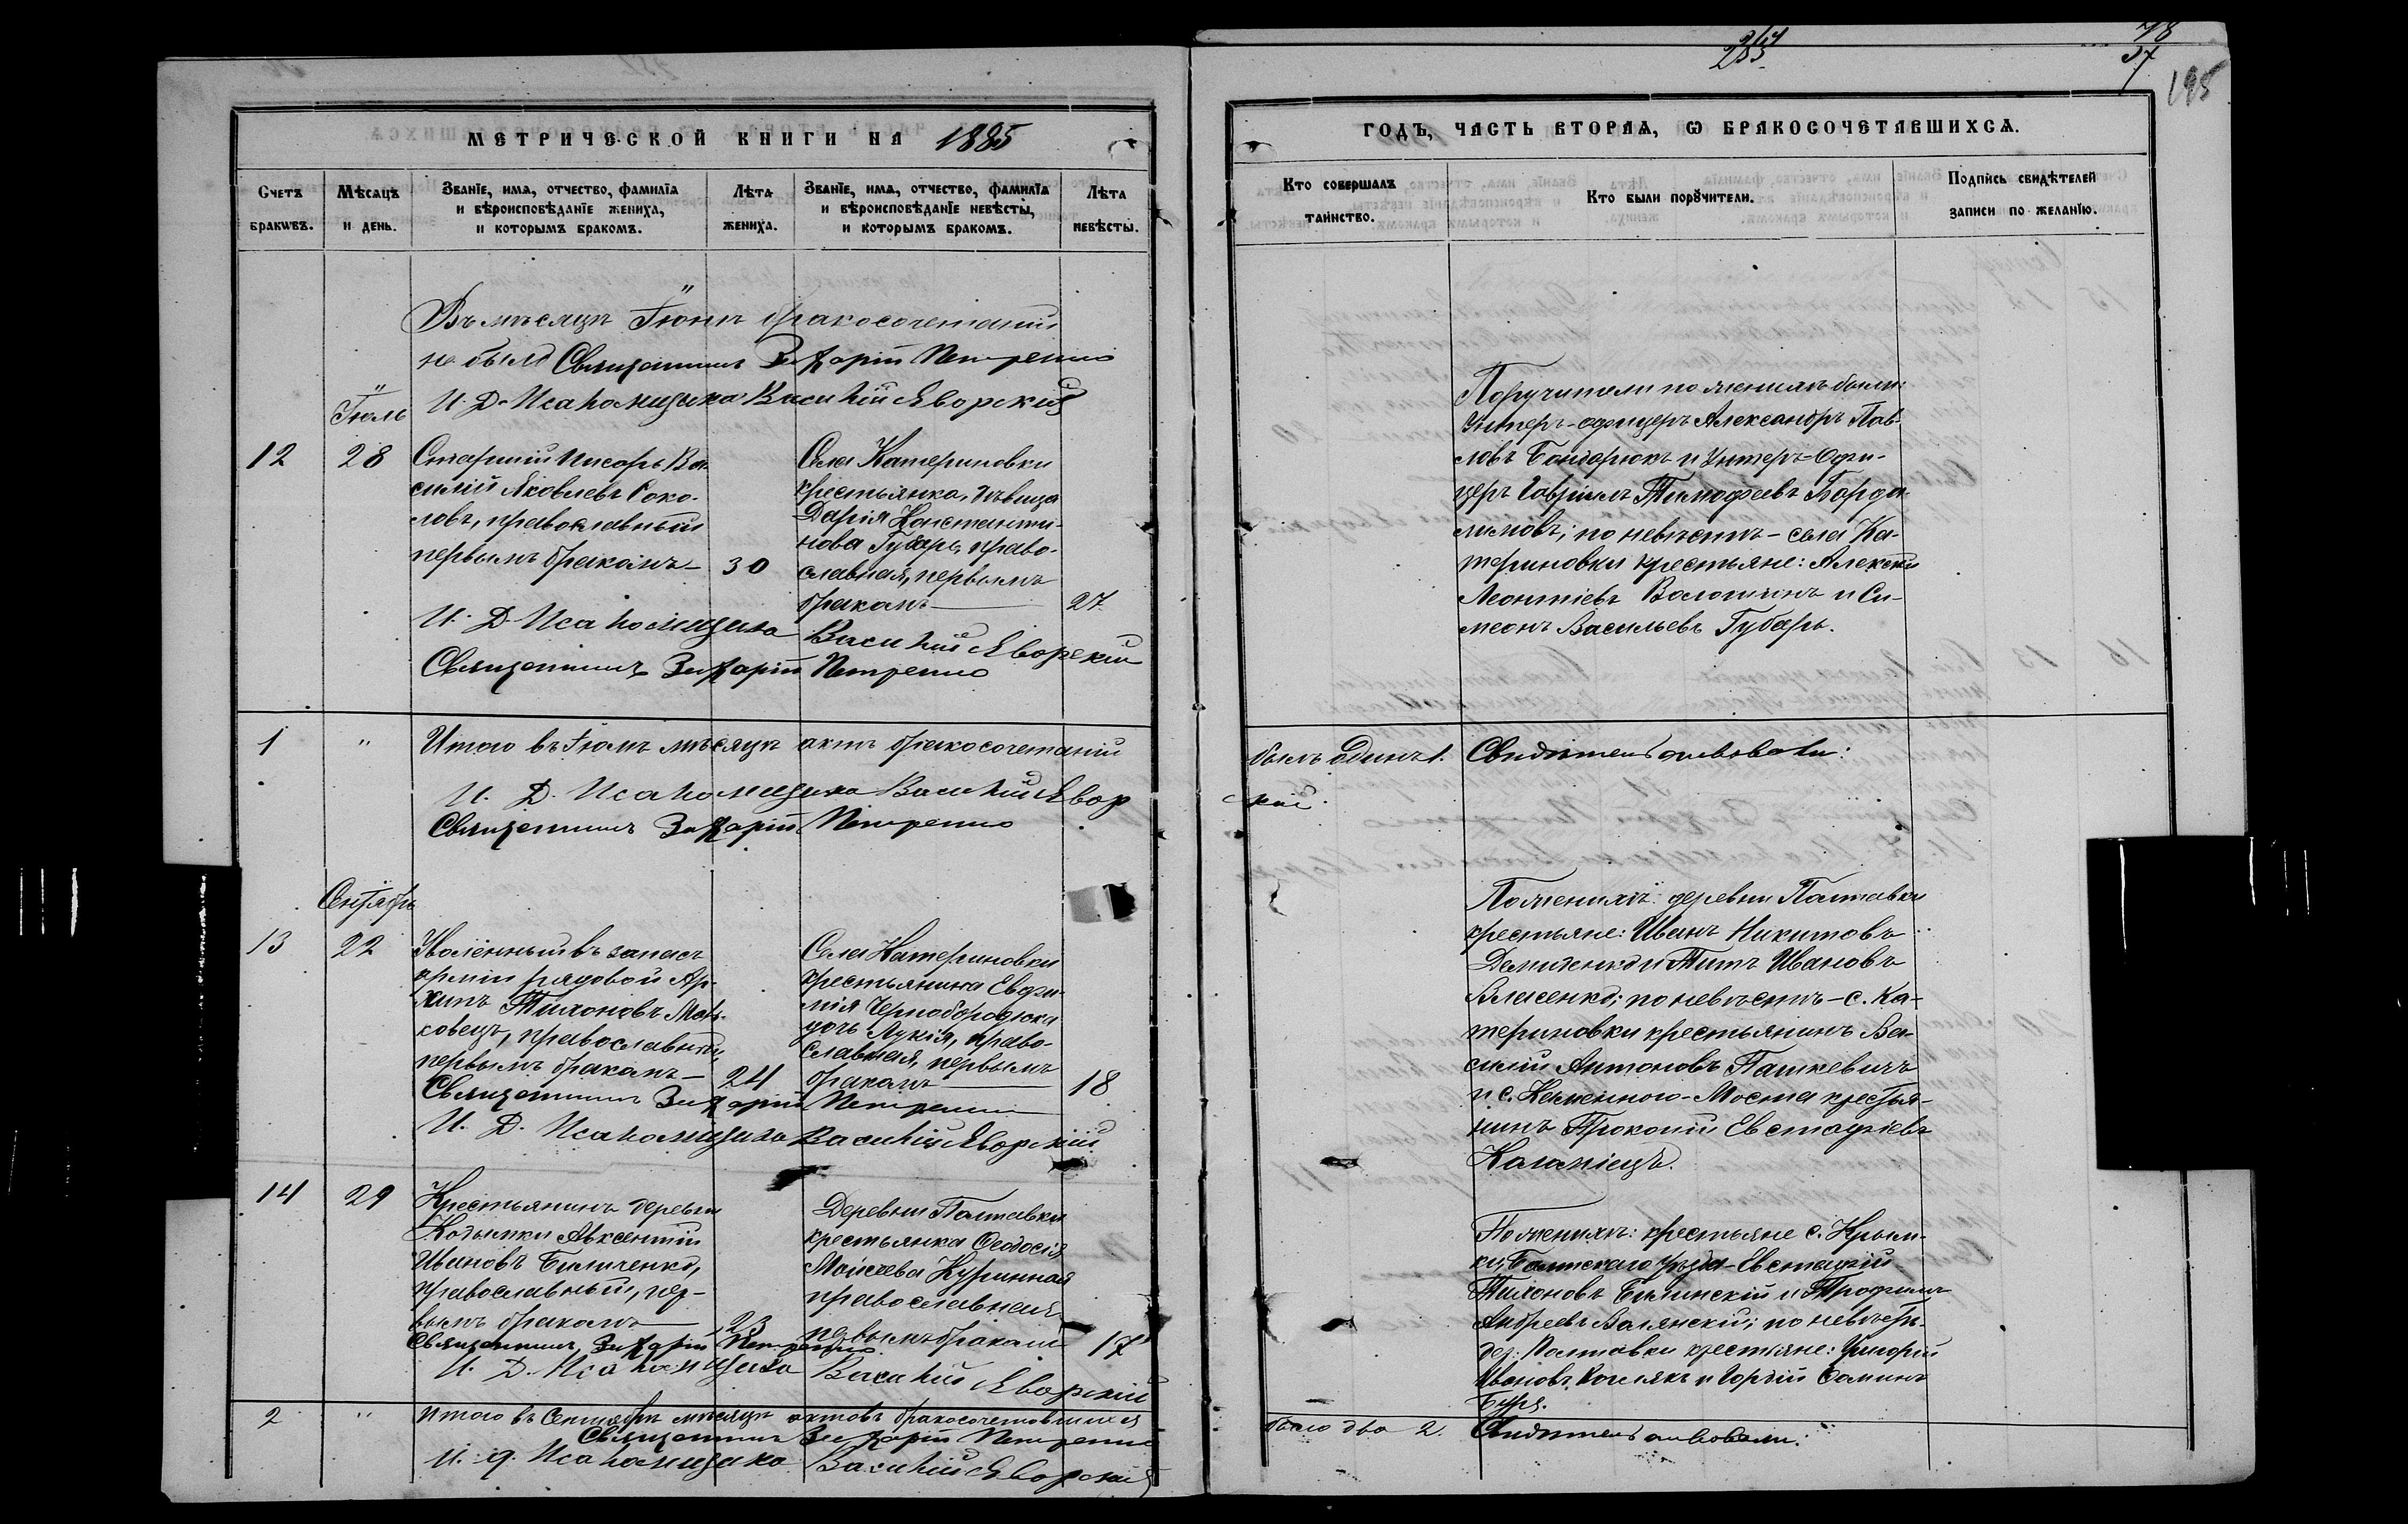 264
265
198
37
195
МЕТРИЧЕСКОЙ КНИГИ НА 1885
ГОДЪ, ЧАСТЬ ВТОРАЯ, Ѡ БРАКОСОЧЕТАВШИХСѦ.
Счетъ браковъ.
Мѣсяцъ и день.
Званїе, имѧ, отчество, фамилїѧ
и вѣроисповѣданїе жениха,
и которымъ бракомъ.
Лѣта
жениха.
Званїе, имѧ, отчество, фамилїѧ
и вѣроисповѣданїе невѣсты,
и которымъ бракомъ.
Лѣта
невѣсты.
Кто совершалъ
таинство.
Кто были порꙋчители.
Подпись свидѣтелей
записи по желанїю.
Въ мѣсяцѣ Іюнѣ бракосочетаній
не было Священникъ Захарій Петренко
И. Д. Псаломщика Василій Яворскій
Іюль
12
28
Старшій писарь Ва-
силій Яковлевъ Соко-
ловъ, православный
первымъ бракомъ
30
Села Катериновки
крестьянка, дѣвица
Дарія Константи-
нова Губарь, право-
славная, первымъ
бракомъ
27
И. Д. Псаломщика Василій Яворскій
Священникъ Захарій Петренко
Поручители по женихѣ были:
Унтеръ-офицеръ Александръ Пав-
ловъ Бондарюкъ и Унтеръ-Офи-
церъ Гавріилъ Тимофеевъ
по невѣстѣ - села Ка-
териновки крестьяне: Алексѣй
Леонтіевъ Волошинъ и Си-
меонъ Васильевъ Губарь.
1
"
Итого въ Іюлѣ мѣсяцѣ актъ бракосочетаній
былъ одинъ 1. Свидѣтельствовали:
И. Д. Псаломщика Василій Явор
скій
Священникъ Захарій Петренко
Сентябрь
13
22
Уволенный въ запасъ
арміи рядовой Ар-
хипъ Тихоновъ
православный
первымъ бракомъ
24
Села Катериновки
крестьянина Евфи-
мія Чернобородюка
дочь Лукія, право-
славная, первымъ
бракомъ
18
Священникъ Захарій Петренко
И. Д. Псаломщика Василій Яворскій
По женихѣ: деревни Полтавки
крестьяне: Иванъ Никитовъ
Демиденко и Титъ Ивановъ
Власенко; по невѣстѣ - с. Ка-
териновки крестьянинъ Ва-
силій Антоновъ Пашкевичъ
и с. Каменного-Моста крестья-
нинъ Прокопій Евстафіевъ
Коломіецъ.
14
29
Крестьянинъ деревни
Кодымки Авксентій
Ивановъ Биличенко,
православный, пер-
вымъ бракомъ
23
Деревни Полтавки
крестьянка Феодосія
Моисеева Куринная
православная
первымъ бракомъ
17
Священникъ Захарій Петренко
И. Д. Псаломщика Василій Яворскій
По женихѣ: крестьяне с. Крым-
ки, Балтскаго уѣзда - Евстафій
Тихоновъ Билинскій и Трофимъ
Андреевъ Волянскій; по невѣстѣ
дер: Полтавки крестьяне: Григорій
Ивановъ и Гордій Фоминъ
Буря.
2
"
Итого въ Сентябрѣ мѣсяцѣ актовъ бракосочетавшихся
было два 2. Свидѣтельствовали:
Священникъ Захарій Петренко
И. д. Псаломщика Василій Яворскій